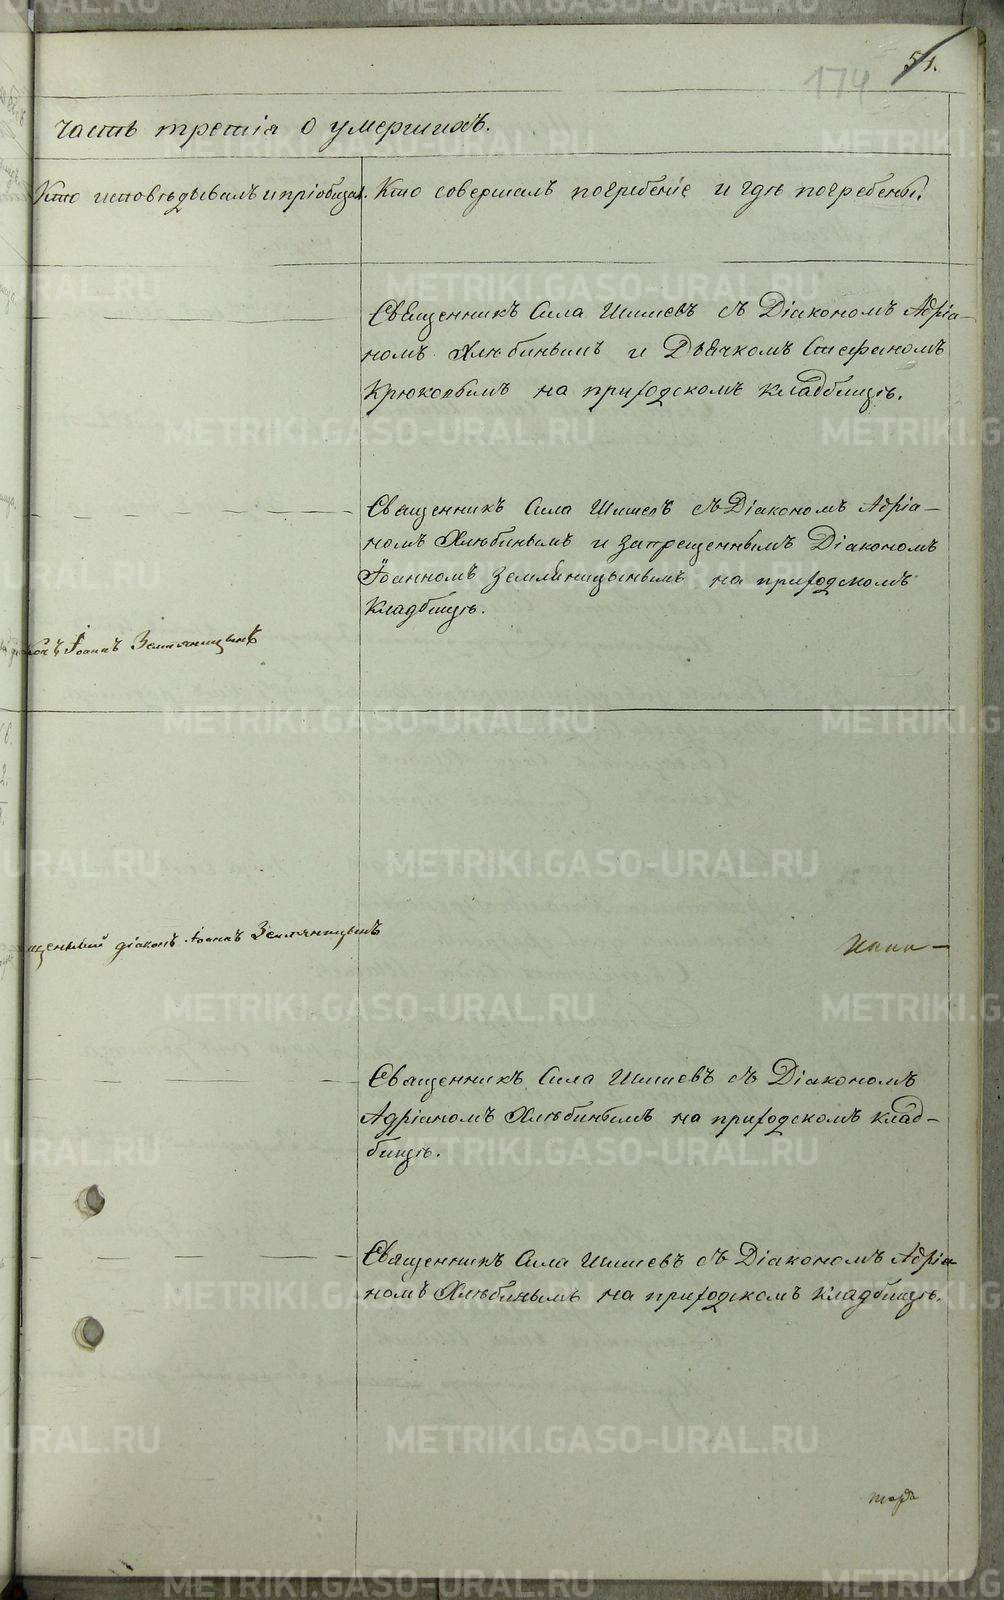 METRIKI.GASO-URAL.RU
174
51.
Часть третія о умершихъ.
Кто исповѣдывалъ и пріобщал.
Кто совершалъ погребеніе и гдѣ погребены.
Священникъ Сила Шишевъ съ Діакономъ Адріа-
номъ Хлѣбинымъ и Дьячкомъ Стефаномъ
Крюковымъ на приходскомъ кладбищѣ.
Священникъ Сила Шишевъ съ Діакономъ Адріа-
номъ Хлюбинымъ и запрещеннымъ Діакономъ
Іоанномъ Земляницынымъ на приходскомъ
кладбищѣ.
Іоаннъ Земляницынъ
щенный діаконъ Іоаннъ Земляницынъ
Священникъ Сила Шишевъ съ Діакономъ
Адріаномъ Хлѣбинымъ на приходскомъ клад-
бищѣ.
Священникъ Сила Шишевъ съ Діакономъ Адріа
номъ Хлѣбинымъ на приходскомъ кладбищѣ.